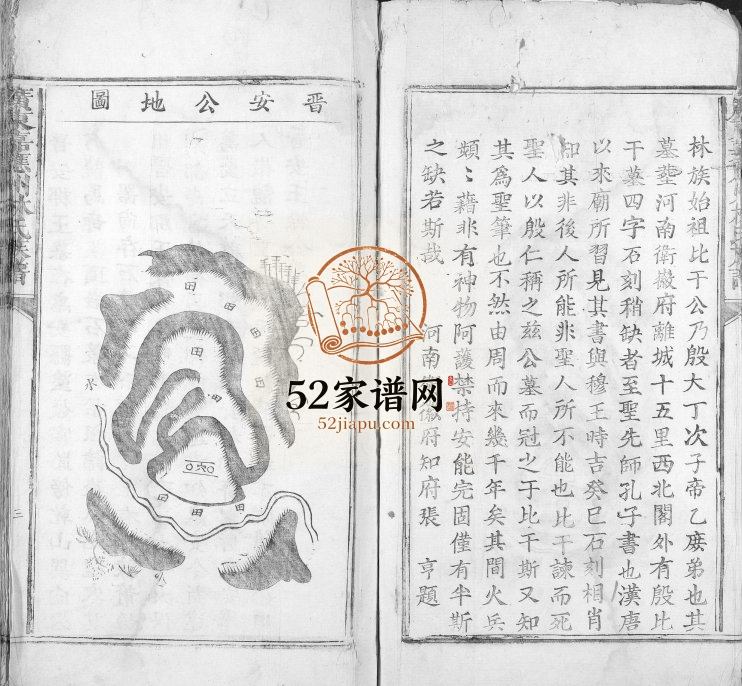 林族始祖比干公乃殷大丁次子帝乙庶弟也其
墓塟河南衛徽府離城十五里西北閣外有殷比
干墓四字石刻稍缺者至聖先師孔子書也漢唐
以來廟所習見其書與穆王時吉癸巳石刻相肖
知其非後人所能非聖人所不能也比干諫而死
聖人以殷仁稱之兹公墓而冠之于比干斯又知
其爲聖筆也不然由周而來幾千年矣其間火兵
頻〻藉非有神物阿護禁持安能完固僅有半斯
之缺若斯哉
河南 徽府知府張 亨題
晋安公地圖
田
田
田
田
田
田
田
田
田
水
三
52家谱网
52jiapu.com